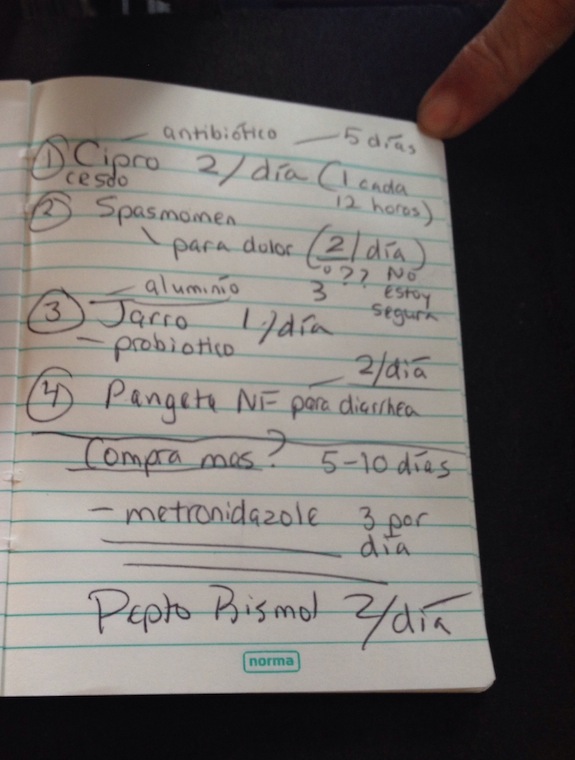 antibiótico — 5 días
① Cipro 2/día (1 cada
cesdo 12 horas)
② Spasmomen
para dolor (2/día)
o ?? No
3 estoy
segura
aluminio
③ Jarro 1/día
- probiotico
2/día
④ Pangeta NF para diarrhea
Compra mas? 5-10 días
- metronidazole 3 por
día
Pepto Bismol 2/día
norma